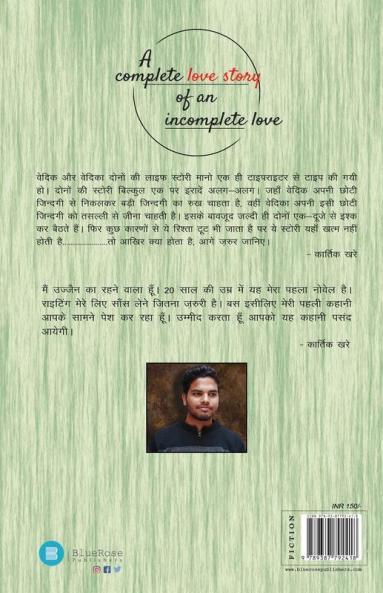 A
complete love story
of an
incomplete love
वेदिक और वेदिका दोनों की लाइफ स्टोरी मानो एक ही टाइपराइटर से टाइप की गयी
हो। दोनों की स्टोरी बिल्कुल एक पर इरादें अलग–अलग। जहाँ वेदिक अपनी छोटी
जिन्दगी से निकलकर बड़ी जिन्दगी का रुख चाहता है, वहीं वेदिका अपनी इसी छोटी
जिन्दगी को तसल्ली से जीना चाहती है। इसके बावजूद जल्दी ही दोनों एक–दूजे से इश्क
कर बैठते हैं। फिर कुछ कारणों से ये रिश्ता टूट भी जाता है पर ये स्टोरी यहाँ खत्म नहीं
होती है......................तो आखिर क्या होता है, आगें जरुर जानिए।
- कार्तिक खरे
मैं उज्जैन का रहने वाला हूँ। 20 साल की उम्र में यह मेरा पहला नोवेल है।
राइटिंग मेरे लिए साँस लेने जितना जरुरी है। बस इसीलिए मेरी पहली कहानी
आपके सामने पेश कर रहा हूँ। उम्मीद करता हूँ आपको यह कहानी पसंद
आयेगी।
- कार्तिक खरे
INR 150/-
FICTION
9 789387 792418
BlueRose
Publishers
www.bluerosepublishers.com